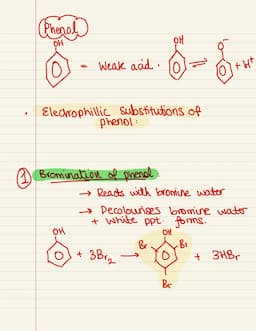 Phenol
OH
= Weak acid.
OH
⇌
O⁻
+ H⁺
• Electrophillic Substitutions of
phenol:
① Bromination of phenol
→ Reacts with bromine water
→ Decolourises bromine water
+ white ppt. forms.
OH
+ 3Br₂ →
OH
Br
Br
Br
+ 3HBr